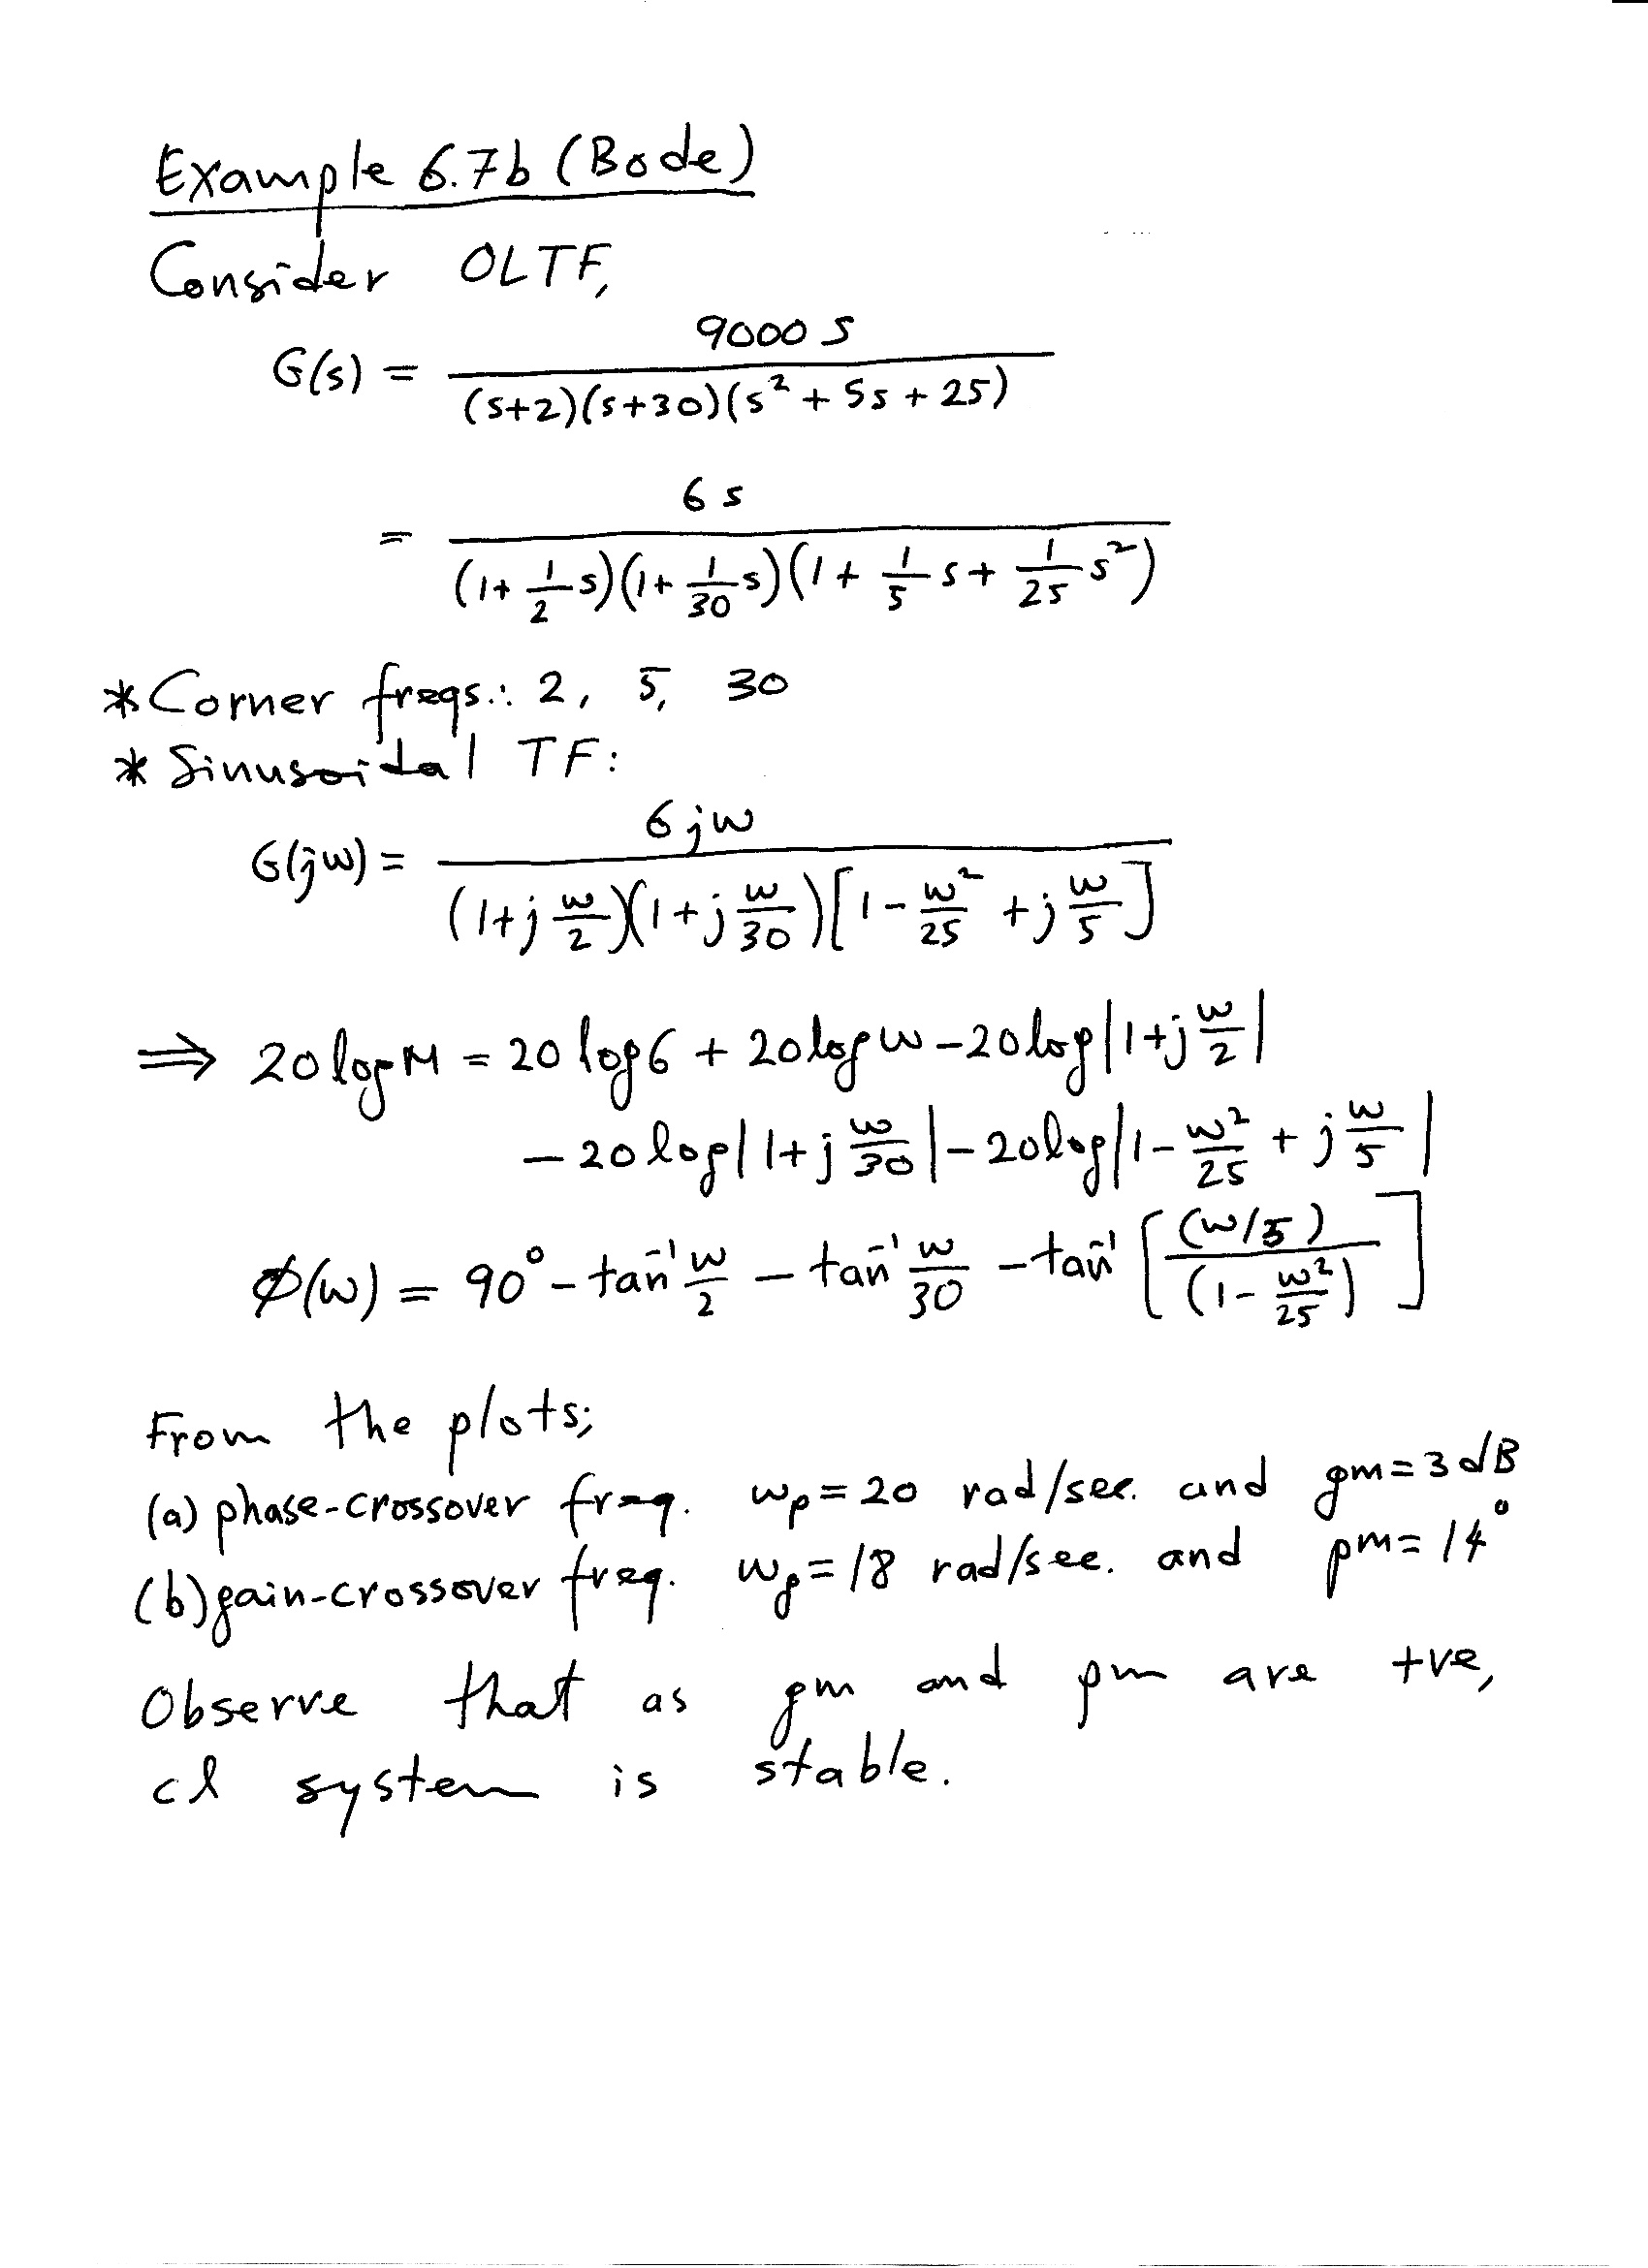 Example 6.7b (Bode)
Consider OLTF,
G(s) = 9000 s / (s+2)(s+30)(s² + 5s + 25)
= 6 s / (1+ 1/2 s)(1+ 1/30 s)(1 + 1/5 s + 1/25 s²)
* Corner freqs.: 2, 5, 30
* Sinusoidal TF:
G(jw) = 6 jw / (1+j w/2)(1+j w/30)[1 - w²/25 + j w/5]
⇒ 20 log M = 20 log 6 + 20 log w - 20 log |1+j w/2|
- 20 log | 1+j w/30 | - 20 log | 1 - w²/25 + j w/5 |
Ø(w) = 90° - tan⁻¹ w/2 - tan⁻¹ w/30 - tan⁻¹ [ (w/5) / (1 - w²/25) ]
From the plots;
(a) phase-crossover freq. wp = 20 rad/sec. and gm = 3 dB
(b) gain-crossover freq. wg = 18 rad/sec. and pm = 14°
Observe that as gm and pm are +ve,
cl system is stable.